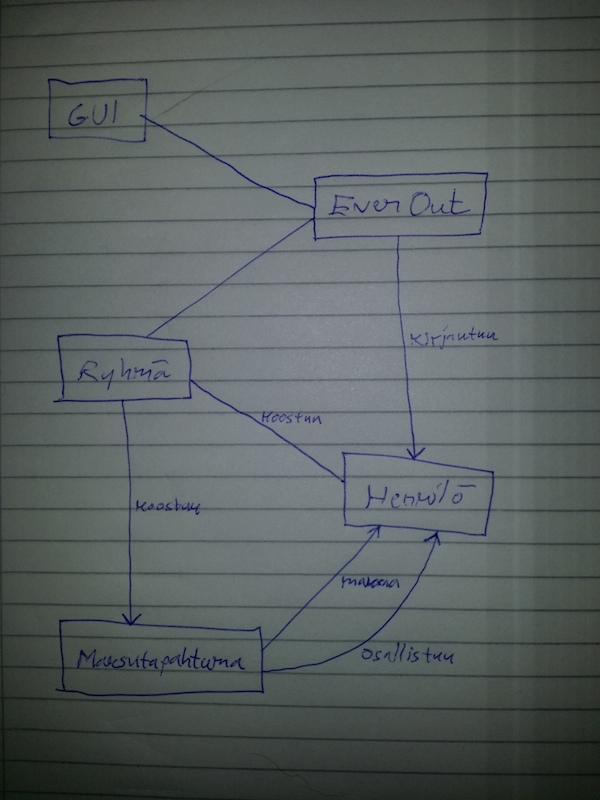 GUI
EverOut
kirjautuu
Ryhmä
koostuu
Henkilö
koostuu
maksaa
Maksutapahtuma
osallistuu